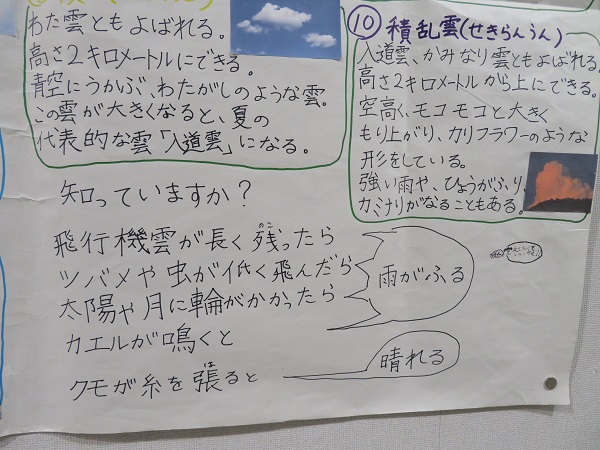 わた雲ともよばれる。
高さ2キロメートルにできる。
青空にうかぶ、わたがしのような雲。
この雲が大きくなると、夏の
代表的な雲「入道雲」になる。
⑩ 積乱雲(せきらんうん)
入道雲、かみなり雲ともよばれる。
高さ2キロメートルから上にできる。
空高く、モコモコと大きく
もり上がり、カリフラワーのような
形をしている。
強い雨や、ひょうがふり、
カミナリがなることもある。
知っていますか?
飛行機雲が長く残ったら
のこ
ツバメや虫が低く飛んだら
太陽や月に輪がかかったら
カエルが鳴くと
雨がふる
クモが糸を張ると
は
晴れる